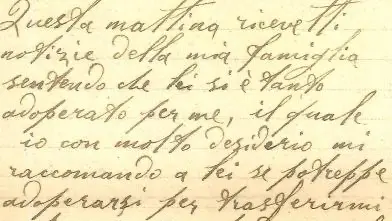 Questa mattina ricevetti
notizie della mia famiglia
sentendo che lei si è tanto
adoperato per me, il quale
io con molto desiderio mi
raccomando a lei se potreppe
adoperarsi per trasferirmi